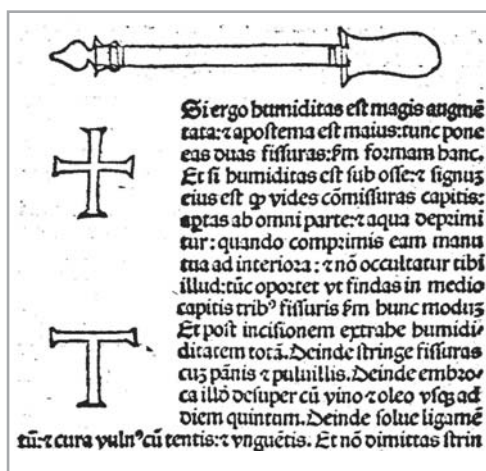 Si ergo humiditas est magis augmē
tata:⁊ apostema est maius:tunc pone
eas duas fissuras:ẜm formam hanc.
Et si humiditas est sub osse:⁊ signuꝫ
eius est ꝙ vides cōmissuras capitis:
aptas ab omni parte:⁊ aqua deprimi
tur: quando comprimis eam manu
tua ad interiora: ⁊ nō occultatur tibi
illud:tūc oportet vt findas in medio
capitis tribꝰ fissuris ẜm hunc moduꝫ
Et post incisionem extrahe humidi⸗
ditatem totā. Deinde stringe fissuras
cuꝫ pānis ⁊ puluillis. Deinde embro⸗
ca illō desuper cū vino ⁊ oleo vsqꝫ ad
diem quintum. Deinde solue ligamē
tū:⁊ cura vulnꝰ cū tentis:⁊ vnguētis. Et nō dimittas strin